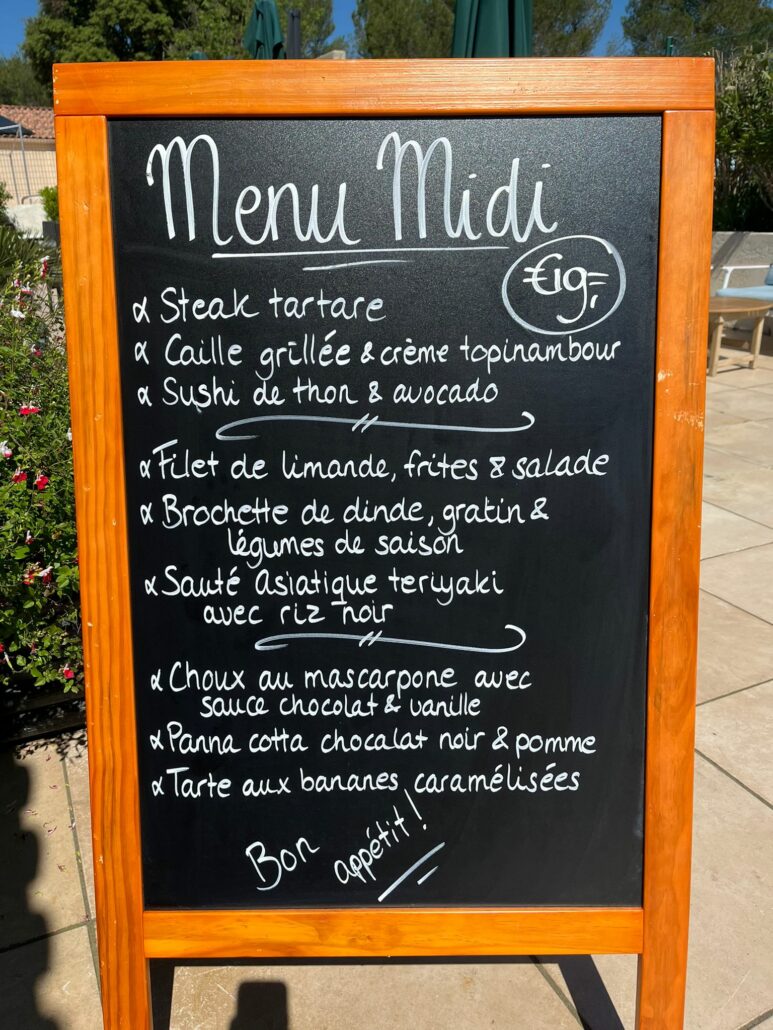 Menu Midi
€19,=
∝ Steak tartare
∝ Caille grillée & crème topinambour
∝ Sushi de thon & avocado
∝ Filet de limande, frites & salade
∝ Brochette de dinde, gratin &
légumes de saison
∝ Sauté Asiatique teriyaki
avec riz noir
∝ Choux au mascarpone avec
sauce chocolat & vanille
∝ Panna cotta chocalat noir & pomme
∝ Tarte aux bananes caramélisées
Bon appétit!